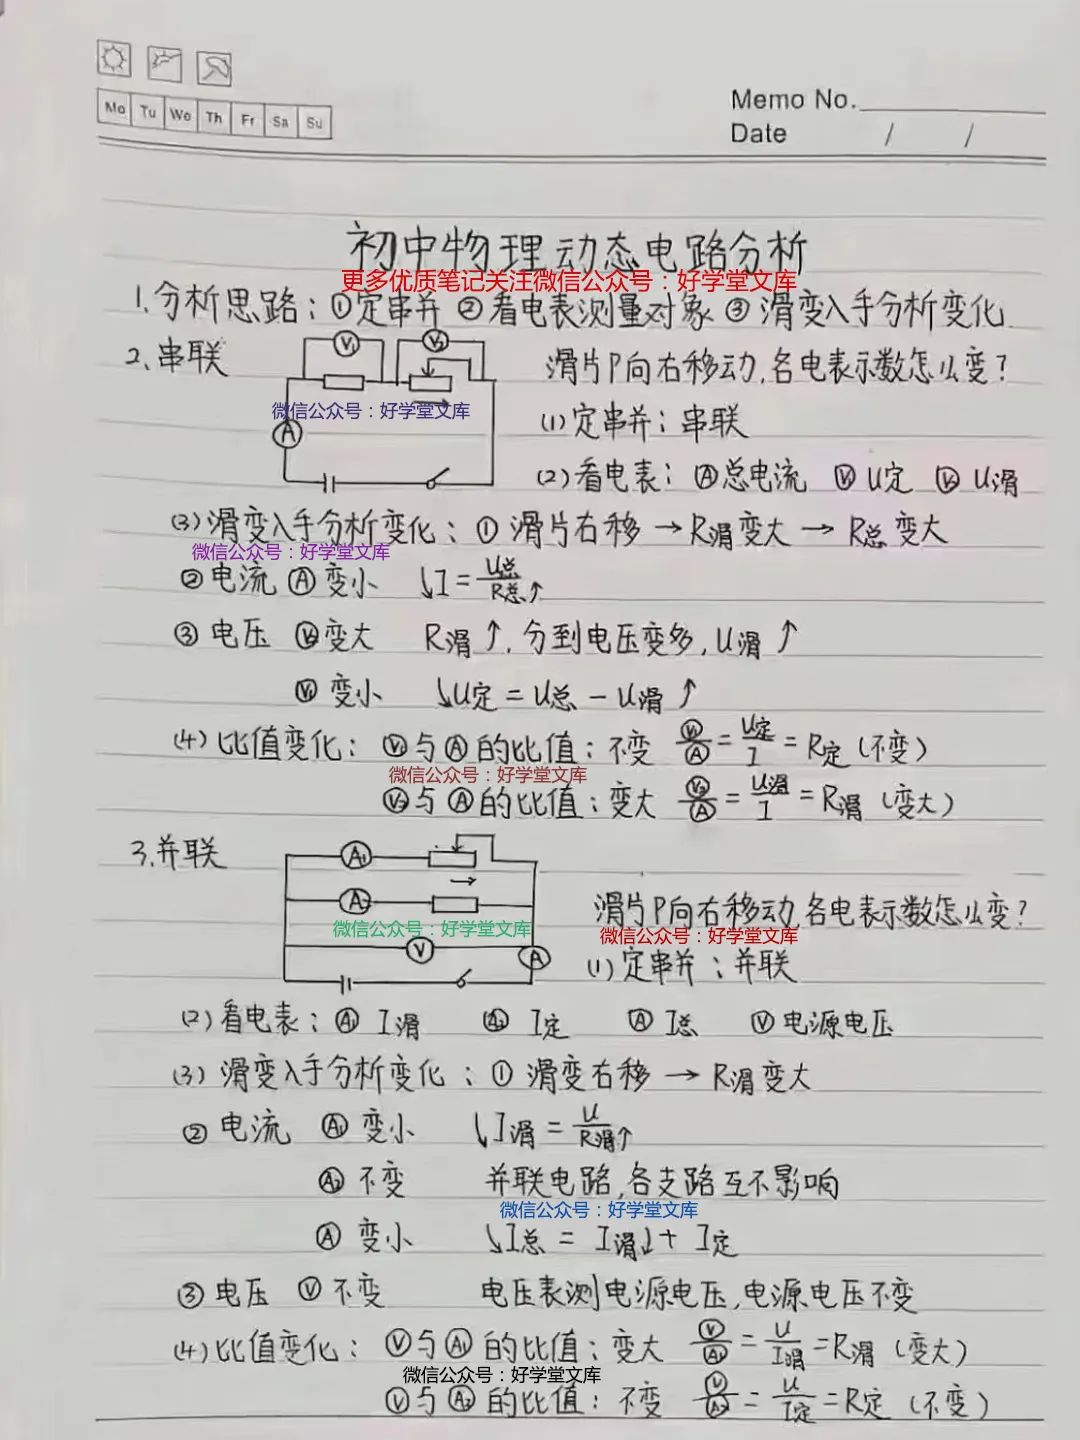 Mo Tu We Th Fr Sa Su
Memo No.
Date / /
初中物理动态电路分析
更多优质笔记关注微信公众号：好学堂文库
1.分析思路：①定串并 ②看电表测量对象 ③滑变入手分析变化
2.串联
V₁ V₂
滑片P向右移动,各电表示数怎么变?
微信公众号：好学堂文库
(1)定串并：串联
A
(2)看电表：Ⓐ总电流 V₁ U定 V₂ U滑
(3)滑变入手分析变化：① 滑片右移 → R滑变大 → R总变大
微信公众号：好学堂文库
②电流 Ⓐ变小 ↓I = U总/R总↑
③ 电压 V₂变大 R滑↑, 分到电压变多, U滑↑
V₁ 变小 ↓U定 = U总 - U滑↑
(4)比值变化：V₁与Ⓐ的比值：不变 V₁/A = U定/I = R定(不变)
微信公众号：好学堂文库
V₂与Ⓐ的比值：变大 V₂/A = U滑/I = R滑 (变大)
3.并联
A₁
A₂
滑片P向右移动,各电表示数怎么变?
微信公众号：好学堂文库
微信公众号：好学堂文库
V A
(1)定串并：并联
(2)看电表：A₁ I滑 A₂ I定 Ⓐ I总 Ⓥ 电源电压
(3) 滑变入手分析变化：① 滑变右移 → R滑变大
② 电流 A₁ 变小 ↓I滑 = U/R滑↑
A₂ 不变 并联电路,各支路互不影响
微信公众号：好学堂文库
Ⓐ 变小 ↓I总 = I滑↓ + I定
③ 电压 Ⓥ 不变 电压表测电源电压,电源电压不变
(4)比值变化：Ⓥ与A₁的比值：变大 V/A₁ = U/I滑 = R滑 (变大)
微信公众号：好学堂文库
Ⓥ与A₂的比值：不变 V/A₂ = U/I定 = R定 (不变)